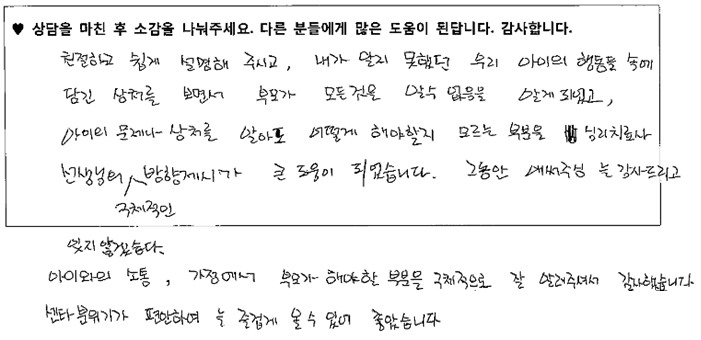 ♥ 상담을 마친 후 소감을 나눠주세요. 다른 분들에게 많은 도움이 된답니다. 감사합니다.
친절하고 쉽게 설명해 주시고, 내가 알지 못했던 우리 아이의 행동들 속에
담긴 상처를 보면서 부모가 모든것을 알수 없음을 알게 되었고,
아이의 문제나 상처를 알아도 어떻게 해야할지 모르는 부분을 심리치료사
선생님의 구체적인 방향제시가 큰 도움이 되었습니다. 그동안 애써주심 늘 감사드리고
잊지 않겠습니다.
아이와의 소통, 가정에서 부모가 해야할 부분을 구체적으로 잘 알려주셔서 감사했습니다
센타분위기가 편안하여 늘 즐겁게 올수 있어 좋았습니다